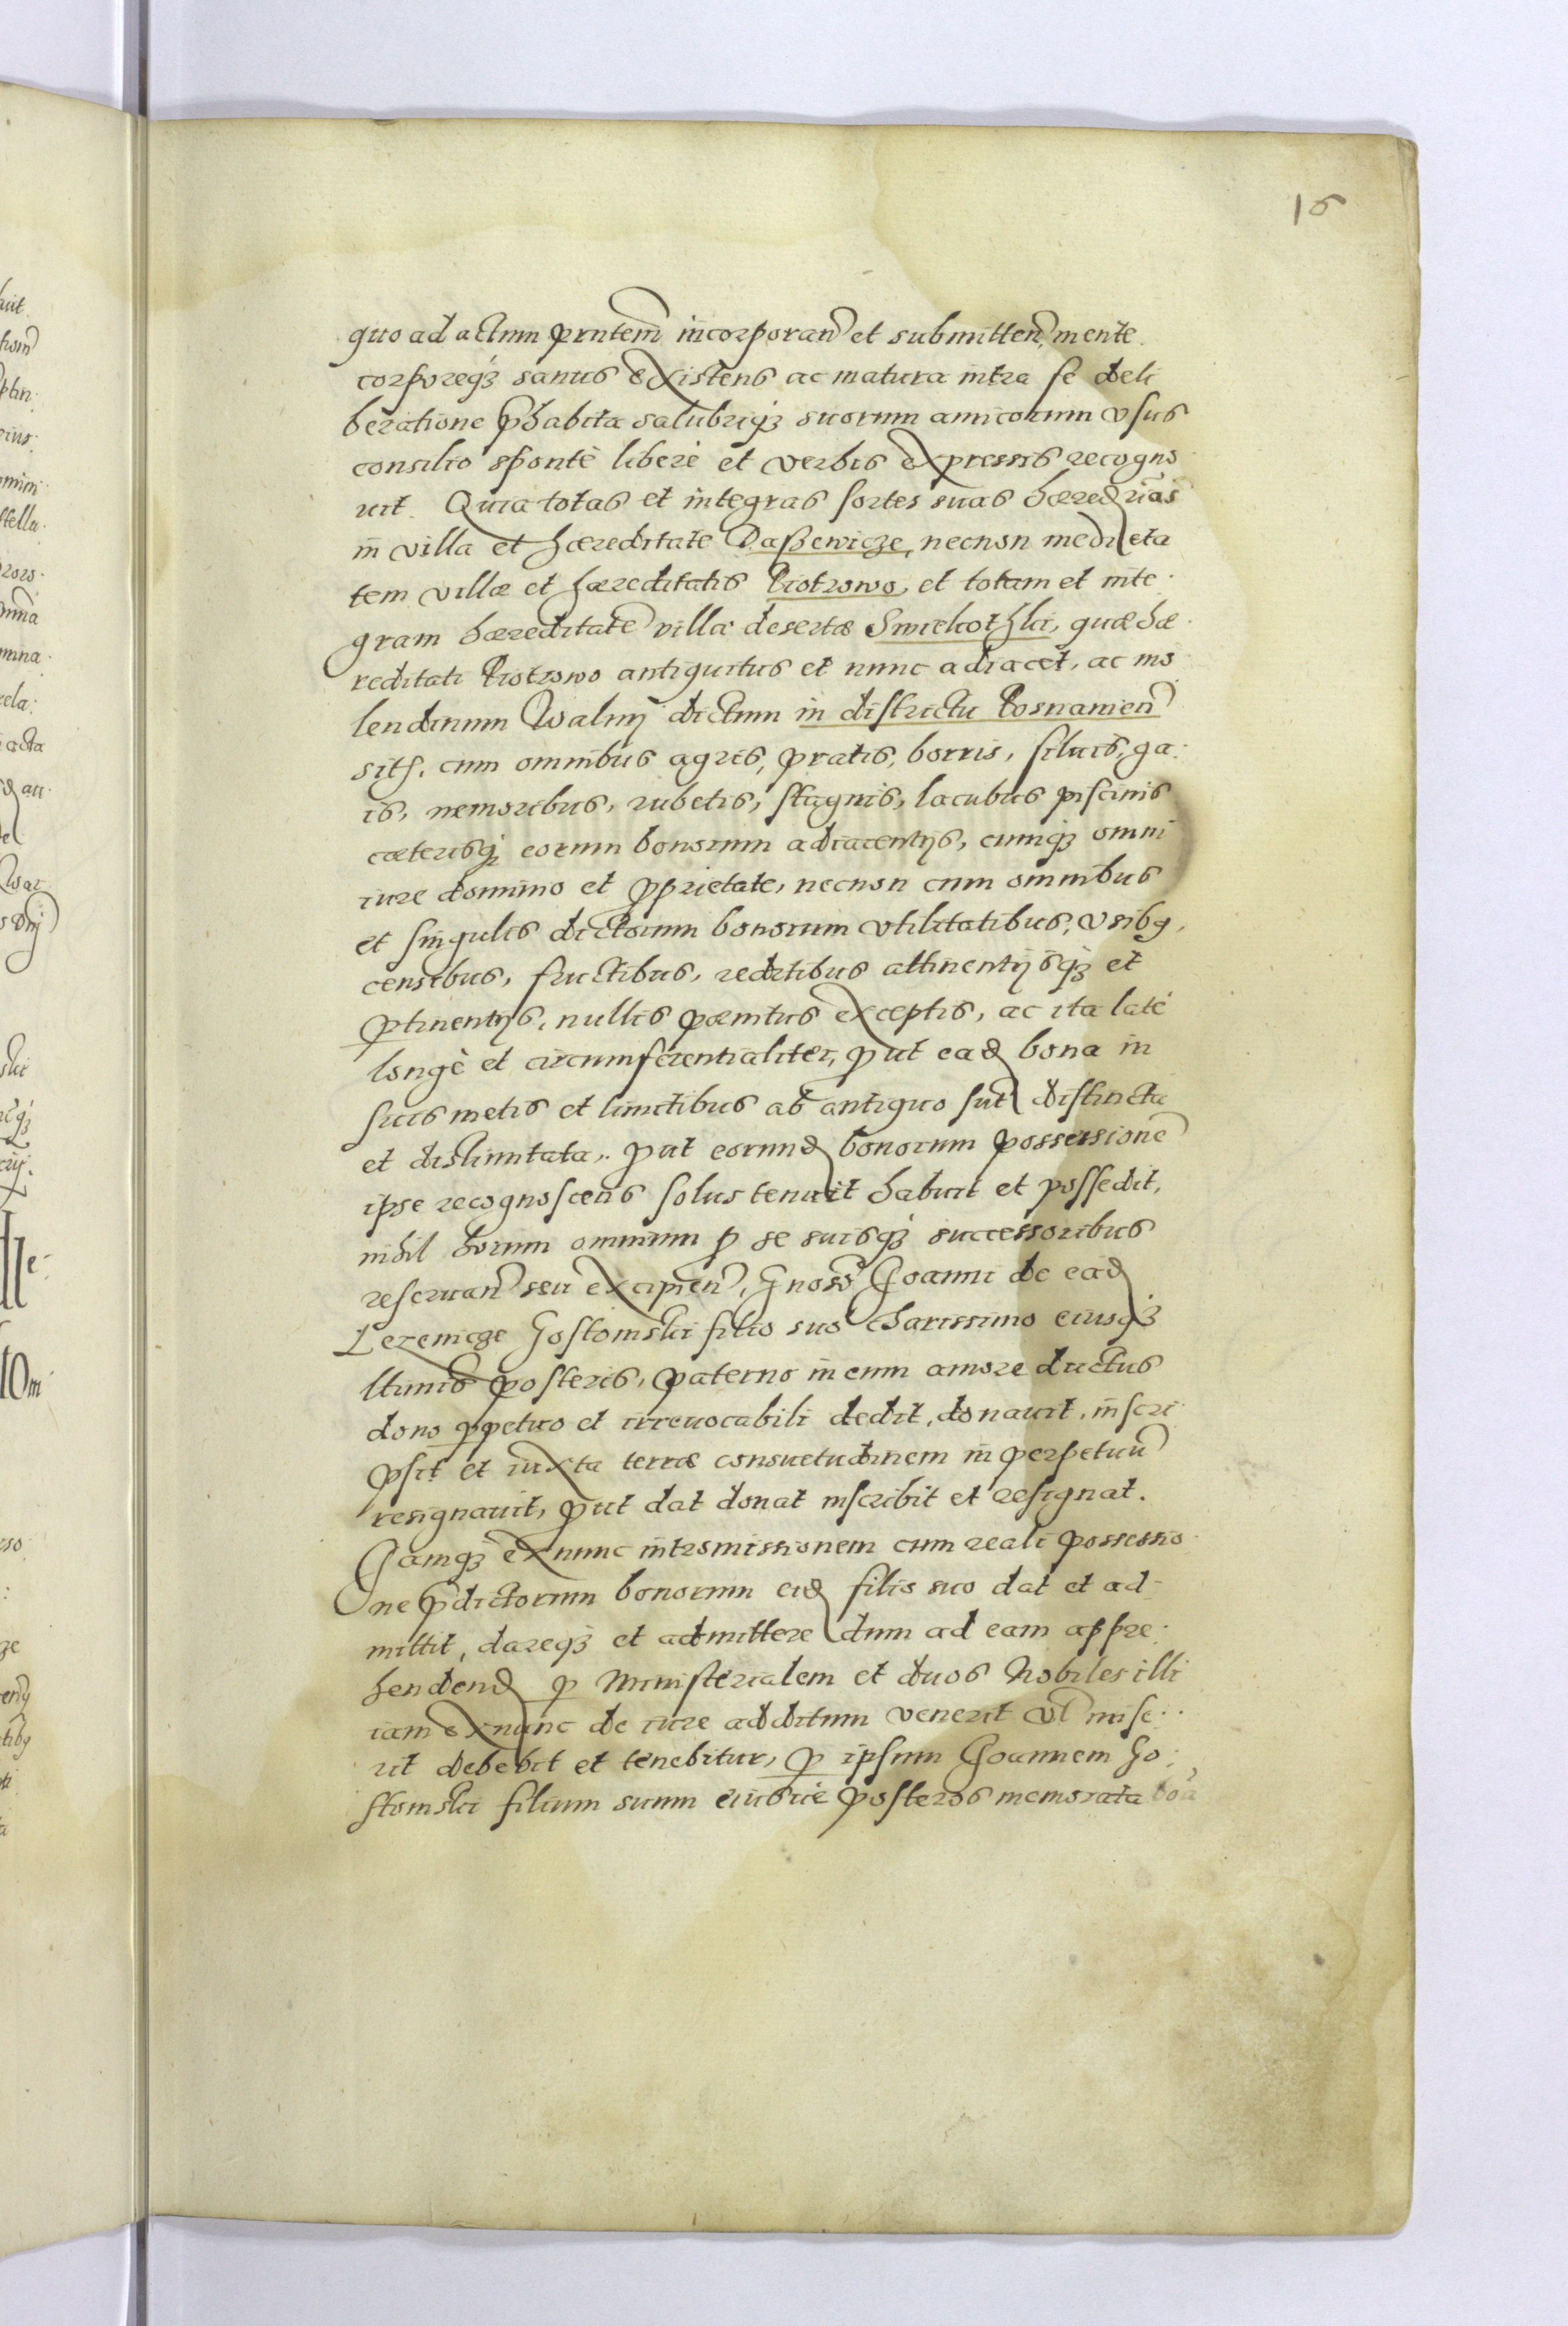 16
quo ad actum prntem incorporan et submitten, mente
corporeq3 sanus existens ac matura intra se deli
beratione phabita salubriq3 suorum amicorum vsus
consilio sponte libere et verbis expressis recogno
uit. Quia totas et integras sortes suas hæredrias
in villa et hæreditate Daßewicze, necnon medieta
tem villæ et hæreditatis Piotrowo, et totam et inte
gram hæreditate villæ desertæ quæ hæ
reditati Piotrowo antiquitus et nunc adiacet, ac mo
lendinum Walnÿ dictum in districtu Posnanien
sits. cum omnibus agris, pratis, borris, siluis, ga:
is, nemoribus, rubetis, stagnis, lacubus piscinis
cæterisq3 eorum bonorum adiacentijs, cumq3 omni
iure dominio et pprietate, necnon cum omnibus
et singulis dictorum bonorum vtilitatibus, vsibq,
censibus, fructibus, reditibus attinentijsq3 et
ptinentijs, nullis pænitus exceptis, ac ita late
longè et circumferentialiter, put ead bona in
suis metis et limitibus ab antiquo sut distincta
et dislimitata. put eorund bonorum possessione
ipse recognoscens solus tenuit habuit et possedit,
nihil horum omnium p se suisq3 successoribus
reseruan seu excipien, Gnoso Joanni de ead
Lezenicze Gostomski filio suo charissimo eiusq3
ltimis posteris, paterno in eum amore ductus
dono ppetuo et irreuocabili dedit, donauit, inscri
psit et iuxta terræ consuetudinem in perpetuu
resignauit, put dat donat inscribit et resignat.
Jamq3 exnunc intromissionem cum reali possessio
ne pdictorum bonorum eid filio suo dat et ad-
mittit, dareq3 et admittere dum ad eam appre:
hendend p Ministerialem et duos Nobiles illi
iam exnunc de iure additum venerit vl mise:
rit debebit et tenebitur, p ipsum Joannem Go:
stomski filium suum eiusue posteros memorata boa